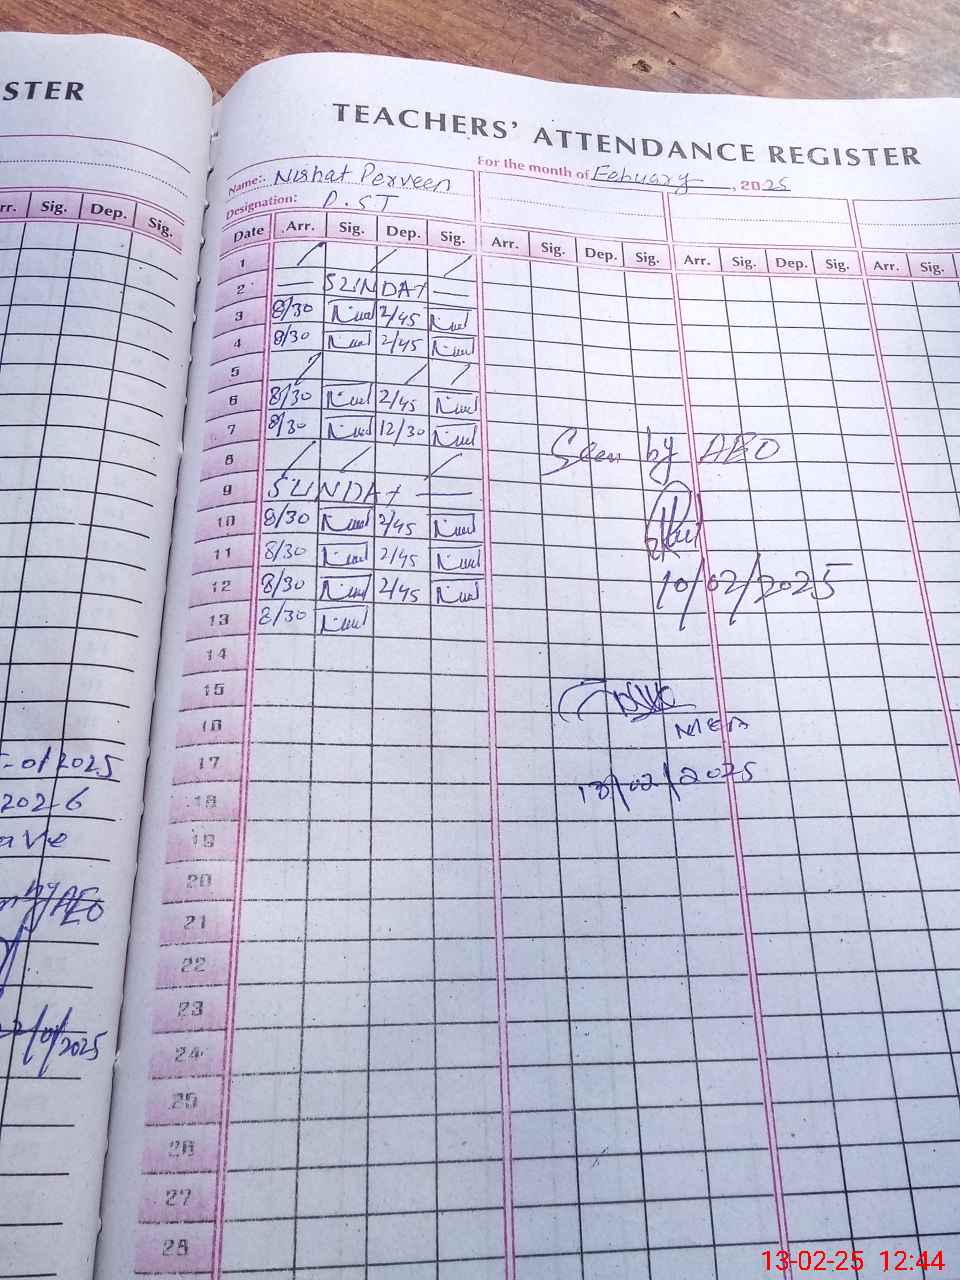 STER
TEACHERS' ATTENDANCE REGISTER
Name: Nishat Perveen
For the month of Febuary, 2025
Designation: P.ST
rr. Sig. Dep. Sig.
Date Arr. Sig. Dep. Sig. Arr. Sig. Dep. Sig. Arr. Sig. Dep. Sig. Arr. Sig.
1
2 — SUNDAY —
3 8/30 2/45
4 8/30 2/45
5
6 8/30 2/45
7 8/30 12/30
8
9 SUNDAY —
Seen by AEO
10 8/30 2/45
11 8/30 2/45
12 8/30 2/45
10/02/2025
13 8/30
14
15
16
17
13/02/2025
18
19
20
21
22
23
24
25
26
27
28
-01/2025
by AEO
13-02-25 12:44